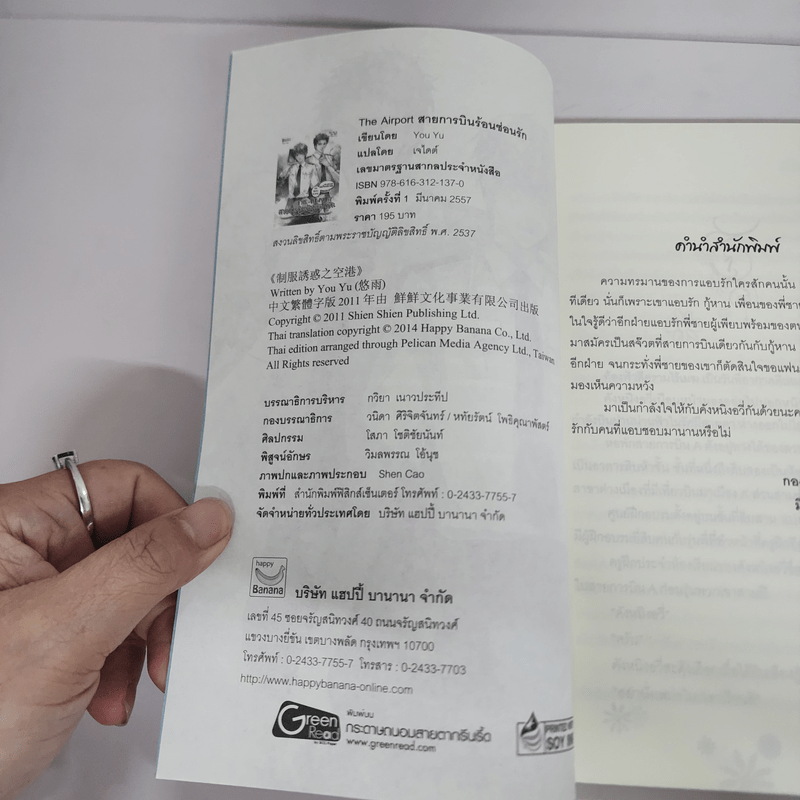 The Airport สายการบินร้อนซ่อนรัก
เขียนโดย You Yu
แปลโดย เจไดต์
เลขมาตรฐานสากลประจำหนังสือ
ISBN 978-616-312-137-0
พิมพ์ครั้งที่ 1 มีนาคม 2557
ราคา 195 บาท
สงวนลิขสิทธิ์ตามพระราชบัญญัติลิขสิทธิ์ พ.ศ. 2537
《制服誘惑之空港》
Written by You Yu (悠雨)
中文繁體字版 2011 年由 鮮鮮文化事業有限公司出版
Copyright © 2011 Shien Shien Publishing Ltd.
Thai translation copyright © 2014 Happy Banana Co., Ltd.
Thai edition arranged through Pelican Media Agency Ltd., Taiwan
All Rights reserved
บรรณาธิการบริหาร กวิยา เนาวประทีป
กองบรรณาธิการ วนิดา ศิริจิตจันทร์ / หทัยรัตน์ โพธิคุณาพัสตร์
ศิลปกรรม โสภา โชติชัยนันท์
พิสูจน์อักษร วิมลพรรณ โอ้นุช
ภาพปกและภาพประกอบ Shen Cao
พิมพ์ที่ สำนักพิมพ์ฟิสิกส์เซ็นเตอร์ โทรศัพท์ : 0-2433-7755-7
จัดจำหน่ายทั่วประเทศโดย บริษัท แฮปปี้ บานานา จำกัด
happy
Banana
บริษัท แฮปปี้ บานานา จำกัด
เลขที่ 45 ซอยจรัญสนิทวงศ์ 40 ถนนจรัญสนิทวงศ์
แขวงบางยี่ขัน เขตบางพลัด กรุงเทพฯ 10700
โทรศัพท์ : 0-2433-7755-7 โทรสาร : 0-2433-7703
http://www.happybanana-online.com
Green
Read
พิมพ์บน
กระดาษถนอมสายตากรีนรี้ด
www.greenread.com
PRINTED WI
SOY IN
คำนำสำนักพิมพ์
ความทรมานของการแอบรักใครสักคนนั้น
ทีเดียว นั่นก็เพราะเขาแอบรัก กู้หาน เพื่อนของพี่ชาย
ในใจรู้ดีว่าอีกฝ่ายแอบรักพี่ชายผู้เพียบพร้อมของตน
มาสมัครเป็นสจ๊วตที่สายการบินเดียวกันกับกู้หาน
อีกฝ่าย จนกระทั่งพี่ชายของเขาก็ตัดสินใจขอแฟน
มองเห็นความหวัง
มาเป็นกำลังใจให้กับคังหนิงอวี่กันด้วยนะค
รักกับคนที่แอบชอบมานานหรือไม่
กอง
มี